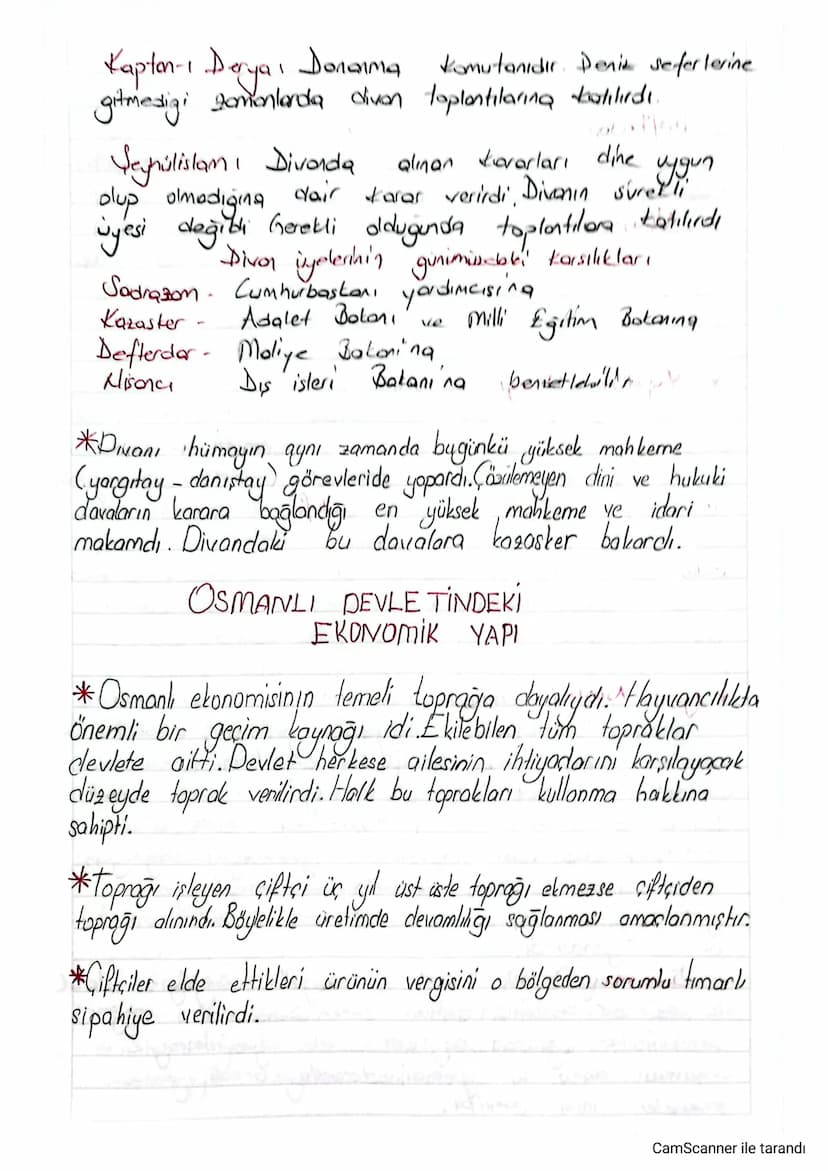 Kaptan-ı Derya: Donanma komutanıdır. Deniz seferlerine
gitmediği zamanlarda divan toplantılarına katılırdı.
Şeyhülislam: Divanda alınan kararları dine uygun
olup olmadığına dair karar verirdi, Divanın sürekli
üyesi değildi Gerekli olduğunda toplantılara katılırdı
Divan üyelerinin günümüzdeki karsılıkları
Sadrazam - Cumhurbaskanı yardımcısına
Kazasker - Adalet Bakanı ve Milli Eğitim Bakanına
Defterdar - Maliye Bakanı'na
Nisancı Dış işleri Bakanı'na benzetilebilir
*Divanı hümayın aynı zamanda bugünkü yüksek mahkeme
(yargıtay - danıştay) görevleride yapardı. Çözülemeyen dini ve hukuki
davaların karara bağlandığı en yüksek mahkeme ve idari
makamdı. Divandaki bu davalara kazasker bakardı.
OSMANLI DEVLETİNDEKİ
EKONOMİK YAPI
*Osmanlı ekonomisinin temeli toprağa dayalıydı. Hayvancılıkta
önemli bir geçim kaynağı idi. Ekilebilen tüm topraklar
devlete aitti. Devlet herkese ailesinin ihtiyaçlarını karsılayacak
düzeyde toprak verilirdi. Halk bu toprakları kullanma hakkına
sahipti.
*Toprağı işleyen çiftçi üç yıl üst üste toprağı ekmezse çiftçiden
toprağı alınırdı. Böylelikle üretimde devamlılığı sağlanması amaçlanmıştır.
*Çiftçiler elde ettikleri ürünün vergisini o bölgeden sorumlu tımarlı
sipahiye verilirdi.
CamScanner ile tarandı